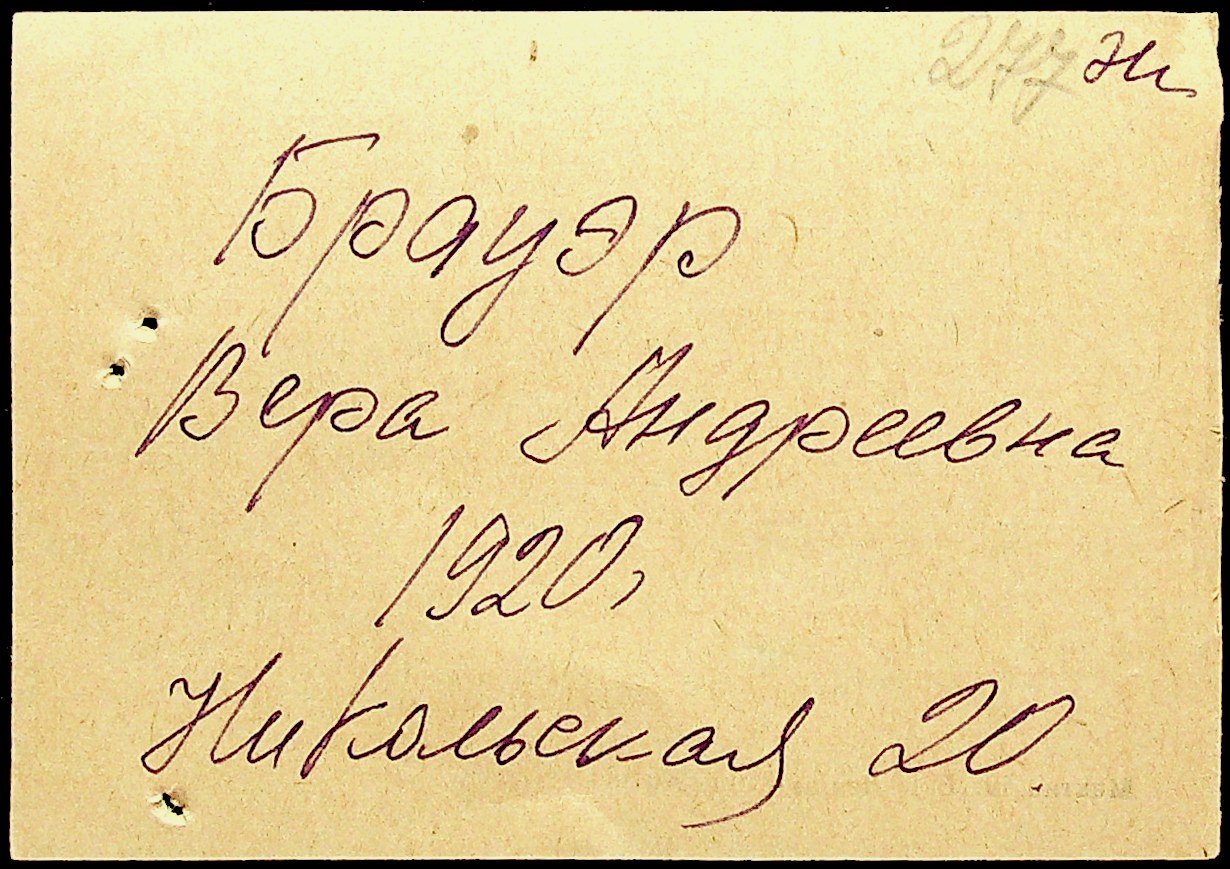 277 н
Брауэр
Вера Андреевна
1920г
Никольская 20